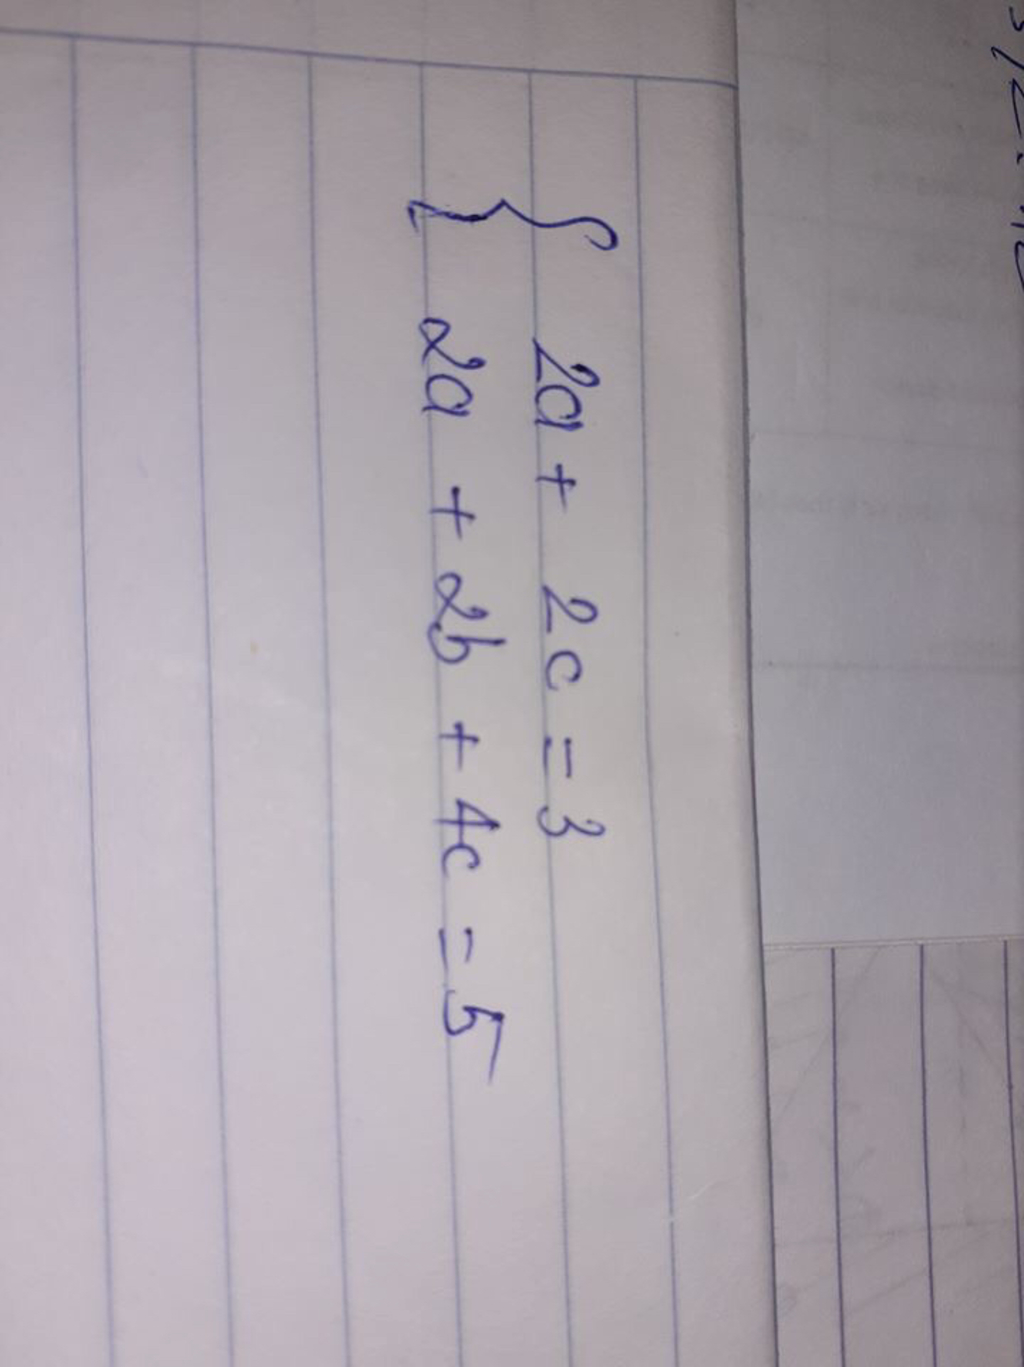 2a + 2c = 3
2a + 2b + 4c = 5